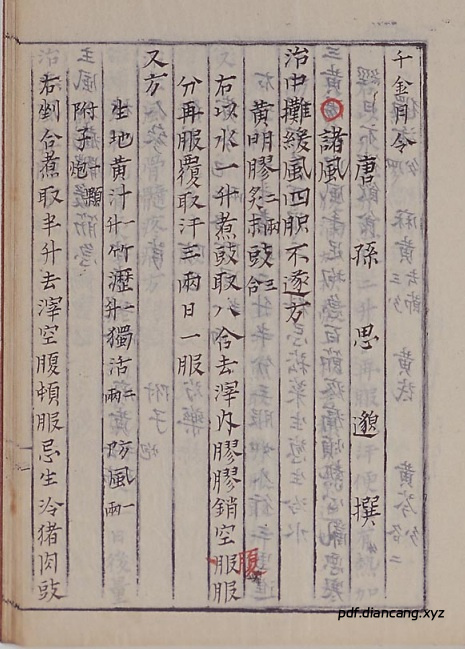 千金月令
唐孫思邈撰
諸風
治中攤緩風四肶不遂方
黄明膠二兩炙打豉三合
右以水一升煮豉取八合去滓内膠膠銷空服服
腹
分再服覆取汗三兩日一服
又方
生地黄汁一升竹瀝一升獨活二兩防風一兩
附子一顆炮
右剉合煮取半升去滓空腹頓服忌生冷猪肉豉
pdf.diancang.xyz